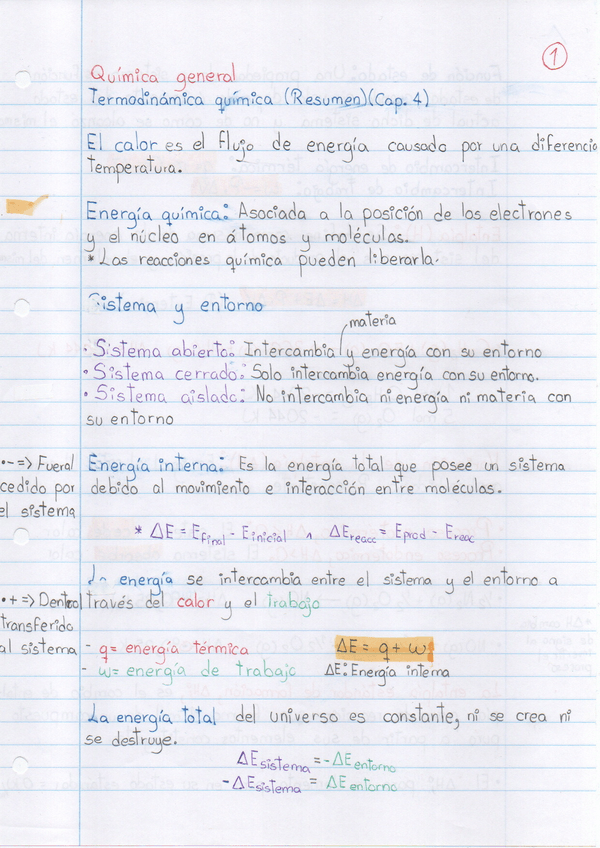 1
Química general
Termodinámica química (Resumen)(Cap. 4)
El calor es el flujo de energía causado por una diferencia
temperatura.
Energía química: Asociada a la posición de los electrones
y el núcleo en átomos y moléculas.
* Las reacciones química pueden liberarla.
Sistema y entorno
materia
• Sistema abierto: Intercambia y energía con su entorno
• Sistema cerrado: Solo intercambia energía con su entorno.
• Sistema aislado: No intercambia ni energía ni materia con
su entorno
•- => Fuera
cedido por
el sistema
Energía interna: Es la energía total que posee un sistema
debido al movimiento e interacción entre moléculas.
* ΔE = Efinal - Einicial ∧ ΔEreacc = Eprod - Ereac
La energía se intercambia entre el sistema y el entorno a
través del calor y el trabajo
•+ => Dentro
transferido
al sistema
- q = energía térmica
- w = energía de trabajo
ΔE = q + w
ΔE: Energía interna
La energía total del universo es constante, ni se crea ni
se destruye.
ΔEsistema = -ΔEentorno
-ΔEsistema = ΔEentorno